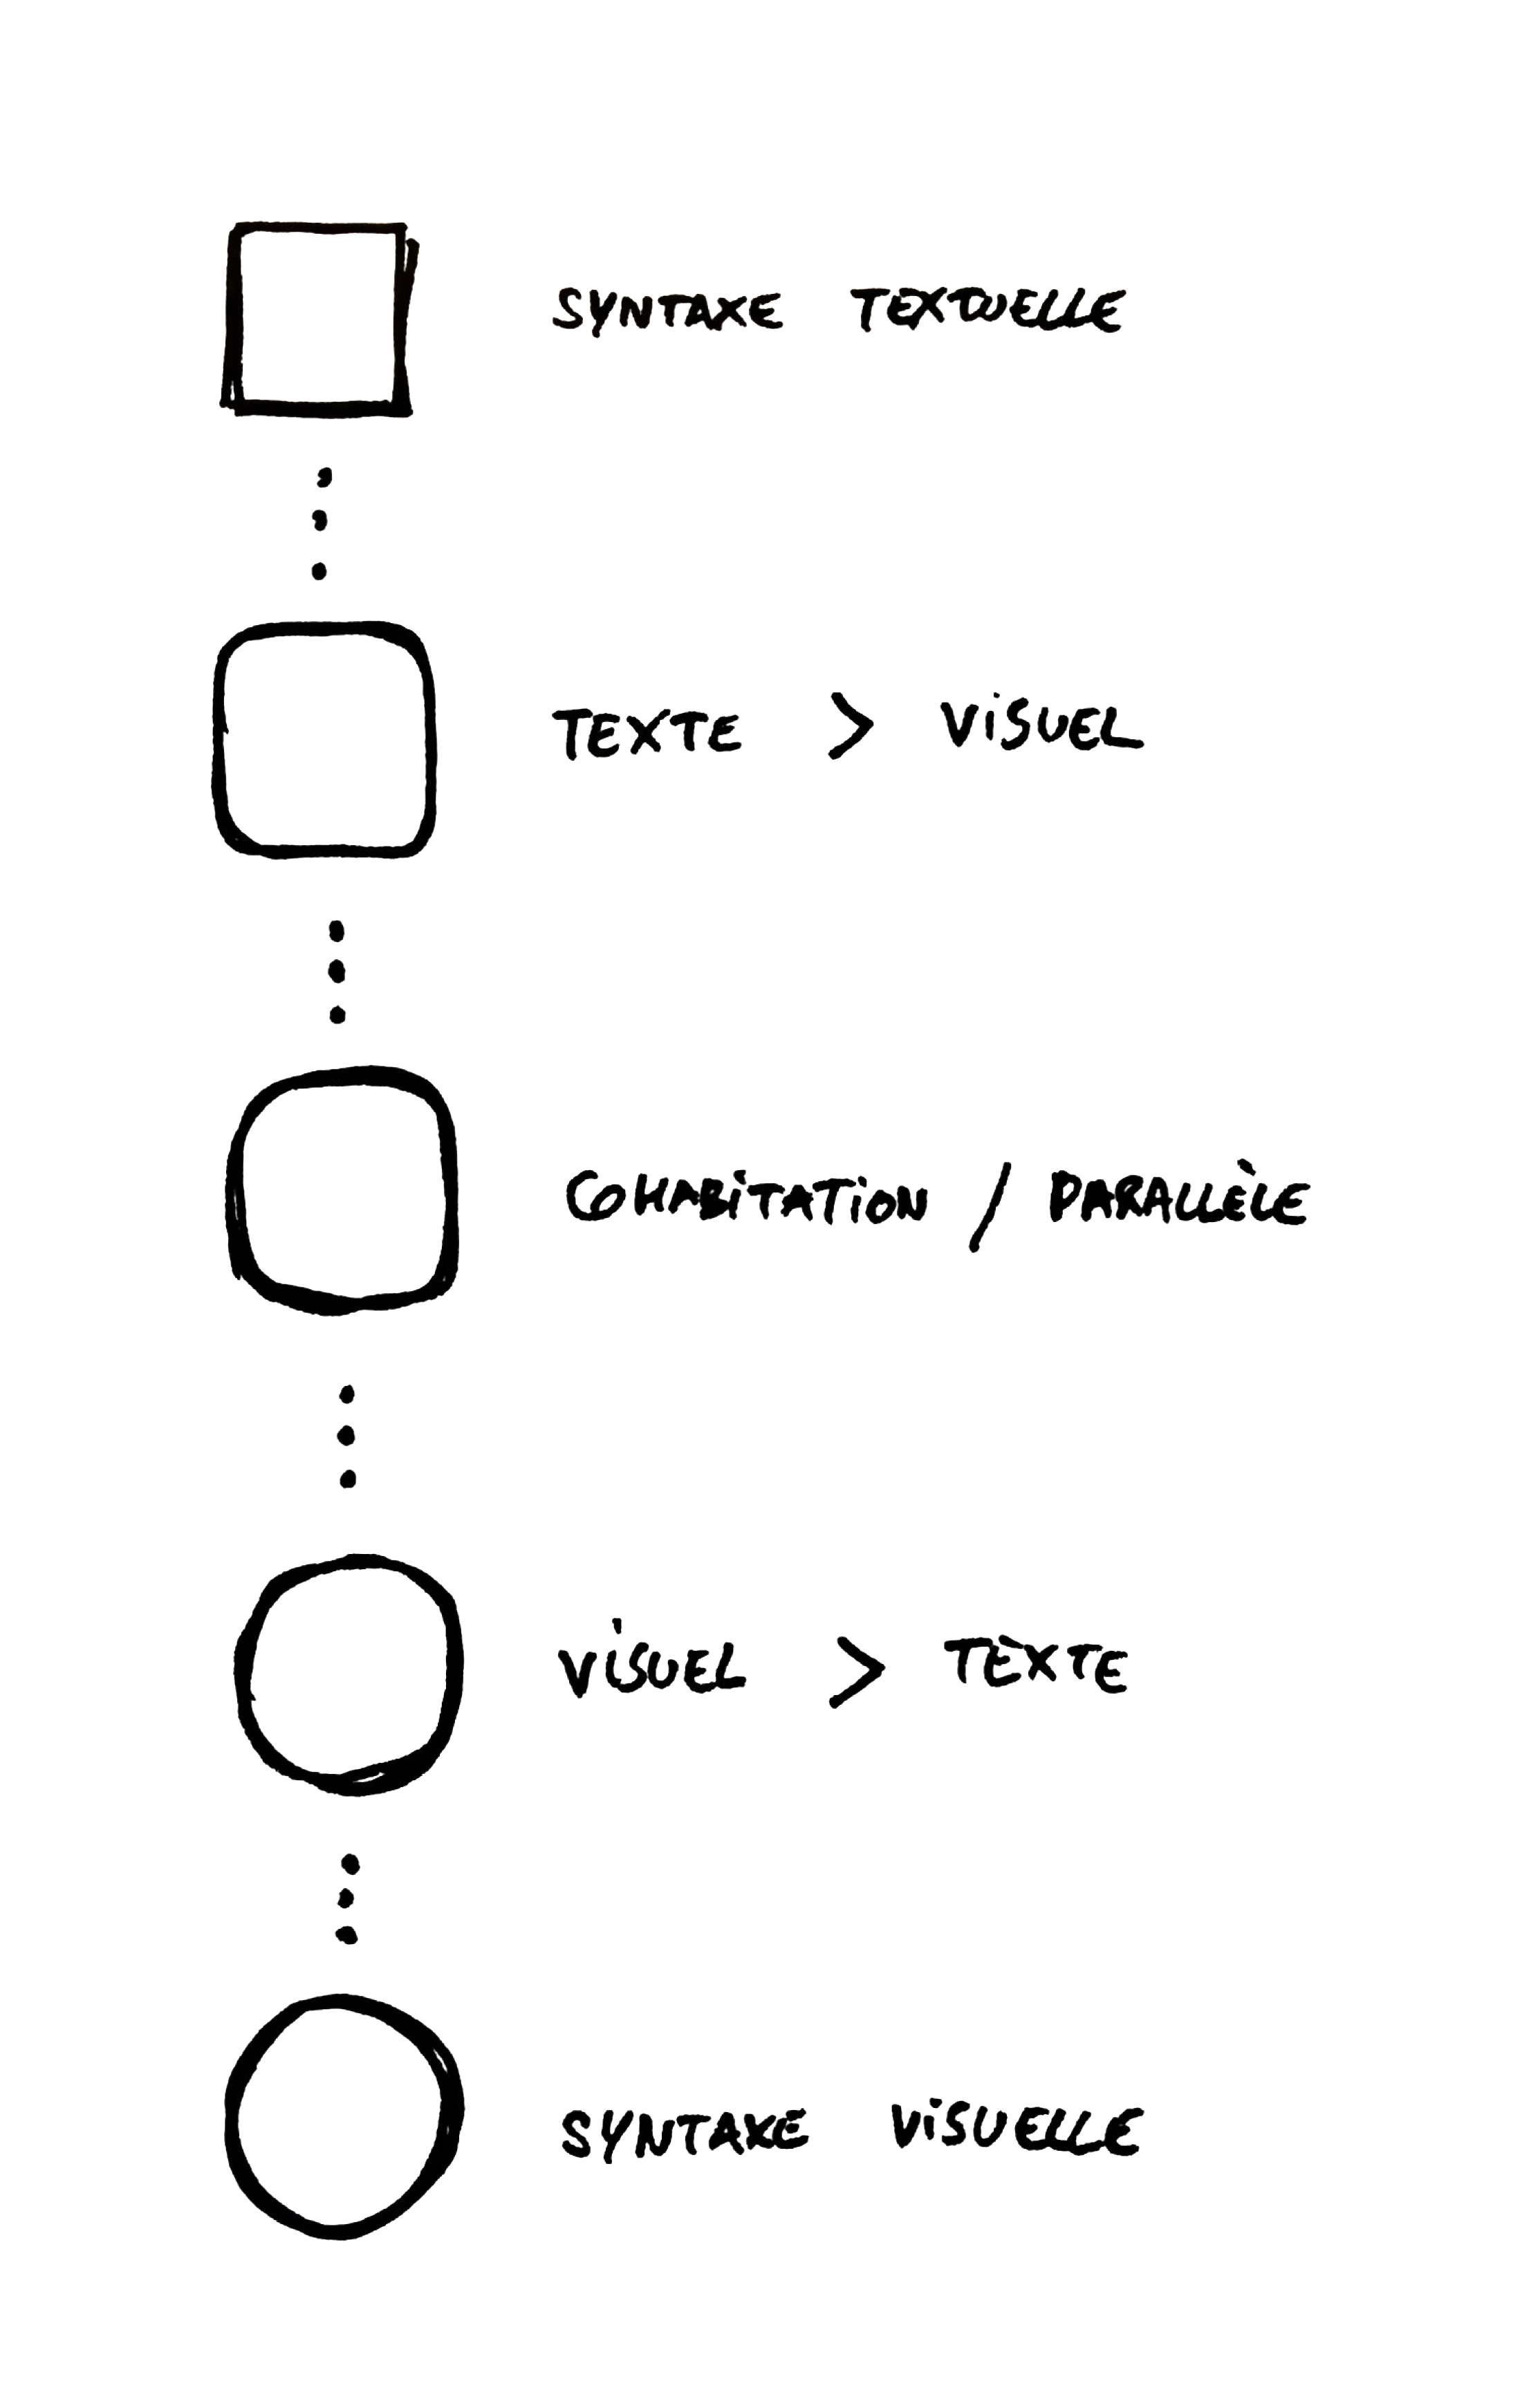 SYNTAXE TEXTUELLE
TEXTE > ViSUEL
COHABiTATiON / PARALLÈLE
ViSUEL > TEXTE
SYNTAXE ViSUELLE